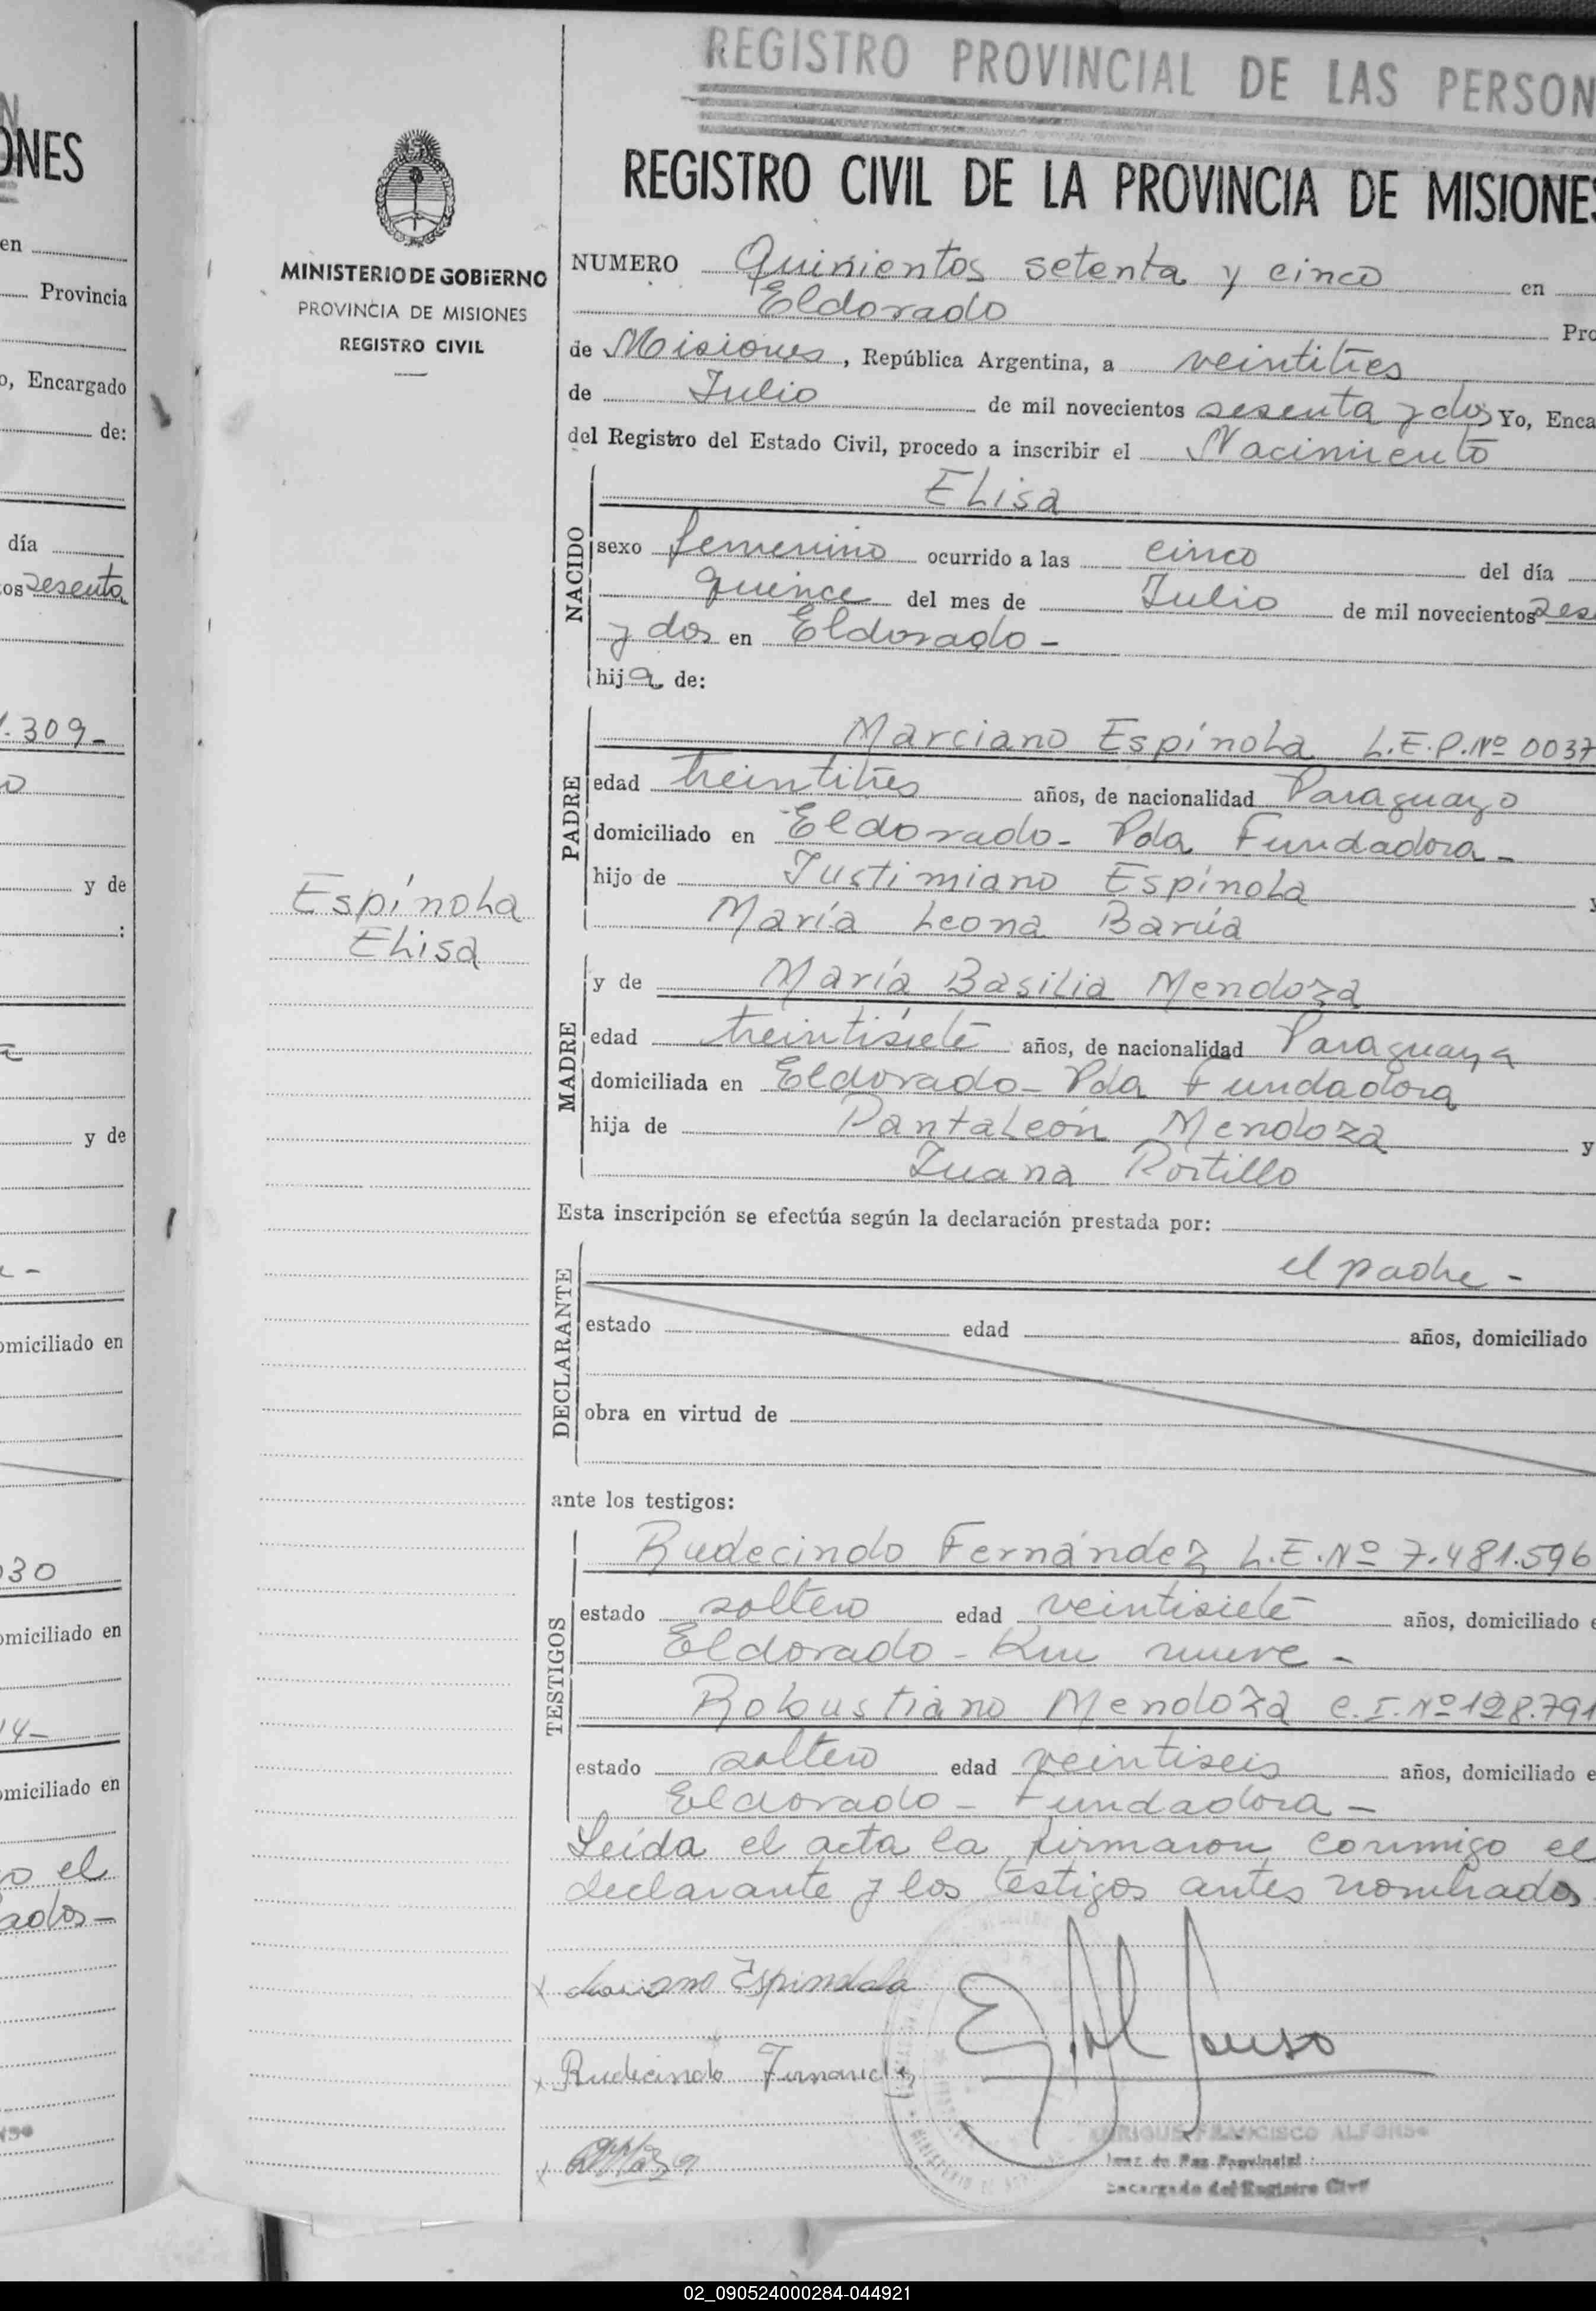 ONES
en
Provincia
o, Encargado
de:
día
os sesenta
1.309-
o
y de
:
y de
omiciliado en
030
omiciliado en
14-
omiciliado en
o el
ados-
MINISTERIO DE GOBIERNO
PROVINCIA DE MISIONES
REGISTRO CIVIL
Espínola
Elisa
REGISTRO PROVINCIAL DE LAS PERSON
REGISTRO CIVIL DE LA PROVINCIA DE MISIONES
NUMERO Quinientos setenta y cinco en
Eldorado Pro
de Misiones, República Argentina, a veintitres
de Julio de mil novecientos sesenta y dos Yo, Enca
del Registro del Estado Civil, procedo a inscribir el Nacimiento
NACIDO
Elisa
sexo femenino ocurrido a las cinco del día
quince del mes de Julio de mil novecientos sese
y dos en Eldorado -
hija de:
PADRE
Marciano Espínola L.E.P.Nº 0037
edad treintitres años, de nacionalidad Paraguayo
domiciliado en Eldorado - Pda Fundadora -
hijo de Justimiano Espínola y
María Leona Barúa
MADRE
y de María Basilia Mendoza
edad treintisiete años, de nacionalidad Paraguaya
domiciliada en Eldorado - Pda Fundadora
hija de Pantaleón Mendoza y
Juana Portillo
Esta inscripción se efectúa según la declaración prestada por:
DECLARANTE
el padre -
estado edad años, domiciliado
obra en virtud de
ante los testigos:
TESTIGOS
Rudecindo Fernández L.E.Nº 7.481.596
estado soltero edad veintisiete años, domiciliado e
Eldorado - Km nueve -
Robustiano Mendoza C.I.Nº 128.791
estado soltero edad veintiseis años, domiciliado e
Eldorado - Fundadora -
Leída el acta la firmaron conmigo el
declarante y los testigos antes nombrados
x Espindola
x Rudecindo Fernandez
x
ENRIQUE FRANCISCO ALFONSO
Juez de Paz Provincial
Encargado del Registro Civil
02_090524000284-044921